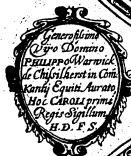 Generosissimo
Viro Domino
PHILIPPO Warwick
de Chisilherst in Com.
Kantij Equiti Aurato,
Hoc CAROLI primi
Regis Sigillum
H. D. F. S.